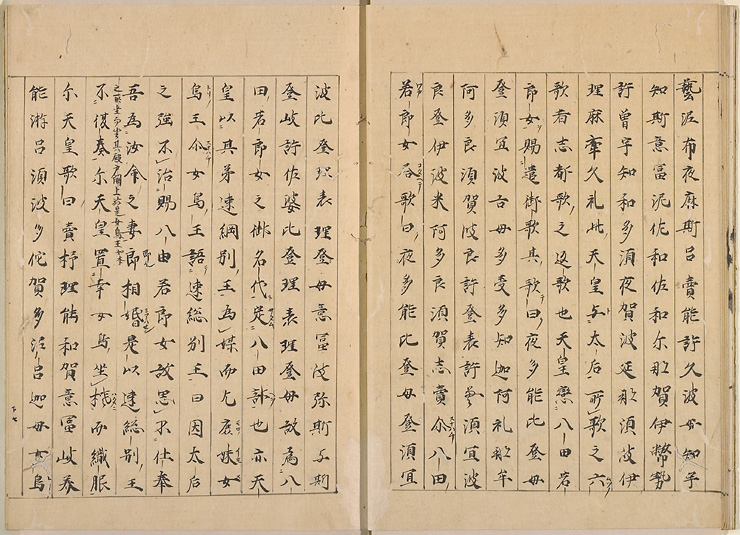 藝泥布夜麻斯呂賣能許久波母知宇
知斯意富泥佐和佐和尓那賀伊幣勢
許曾宇知和多須夜賀波延那須岐伊
理麻韋久礼此天皇与太后所歌之六
歌者志都歌之返歌也天皇戀八田若
郎女賜遣御歌其歌曰夜多能比登母
登須宜波古母多受多知迦阿礼那牟
阿多良須賀波良許登袁許曾須宜波
良登伊波米阿多良須賀志賣尓八田
若郎女答歌曰夜多能比登母登須宜
波比登理袁理登母意富岐弥斯与斯
登岐許佐婆比登理袁理登母故為八
田若郎女之御名代定八田部也亦天
皇以其弟速総別王為媒而乞庶妹女
鳥王尓女鳥王語速総別王曰因太后
之強不治賜八田若郎女故思不仕奉
吾為汝命之妻即相婚是以速総別王
不復奏尓天皇直幸女鳥坐機而織服
之所坐而坐其殿戸閾上於是女鳥王
尓天皇歌曰賣杼理能和賀意富岐美
能淤呂須波多他賀多泥呂迦母女鳥